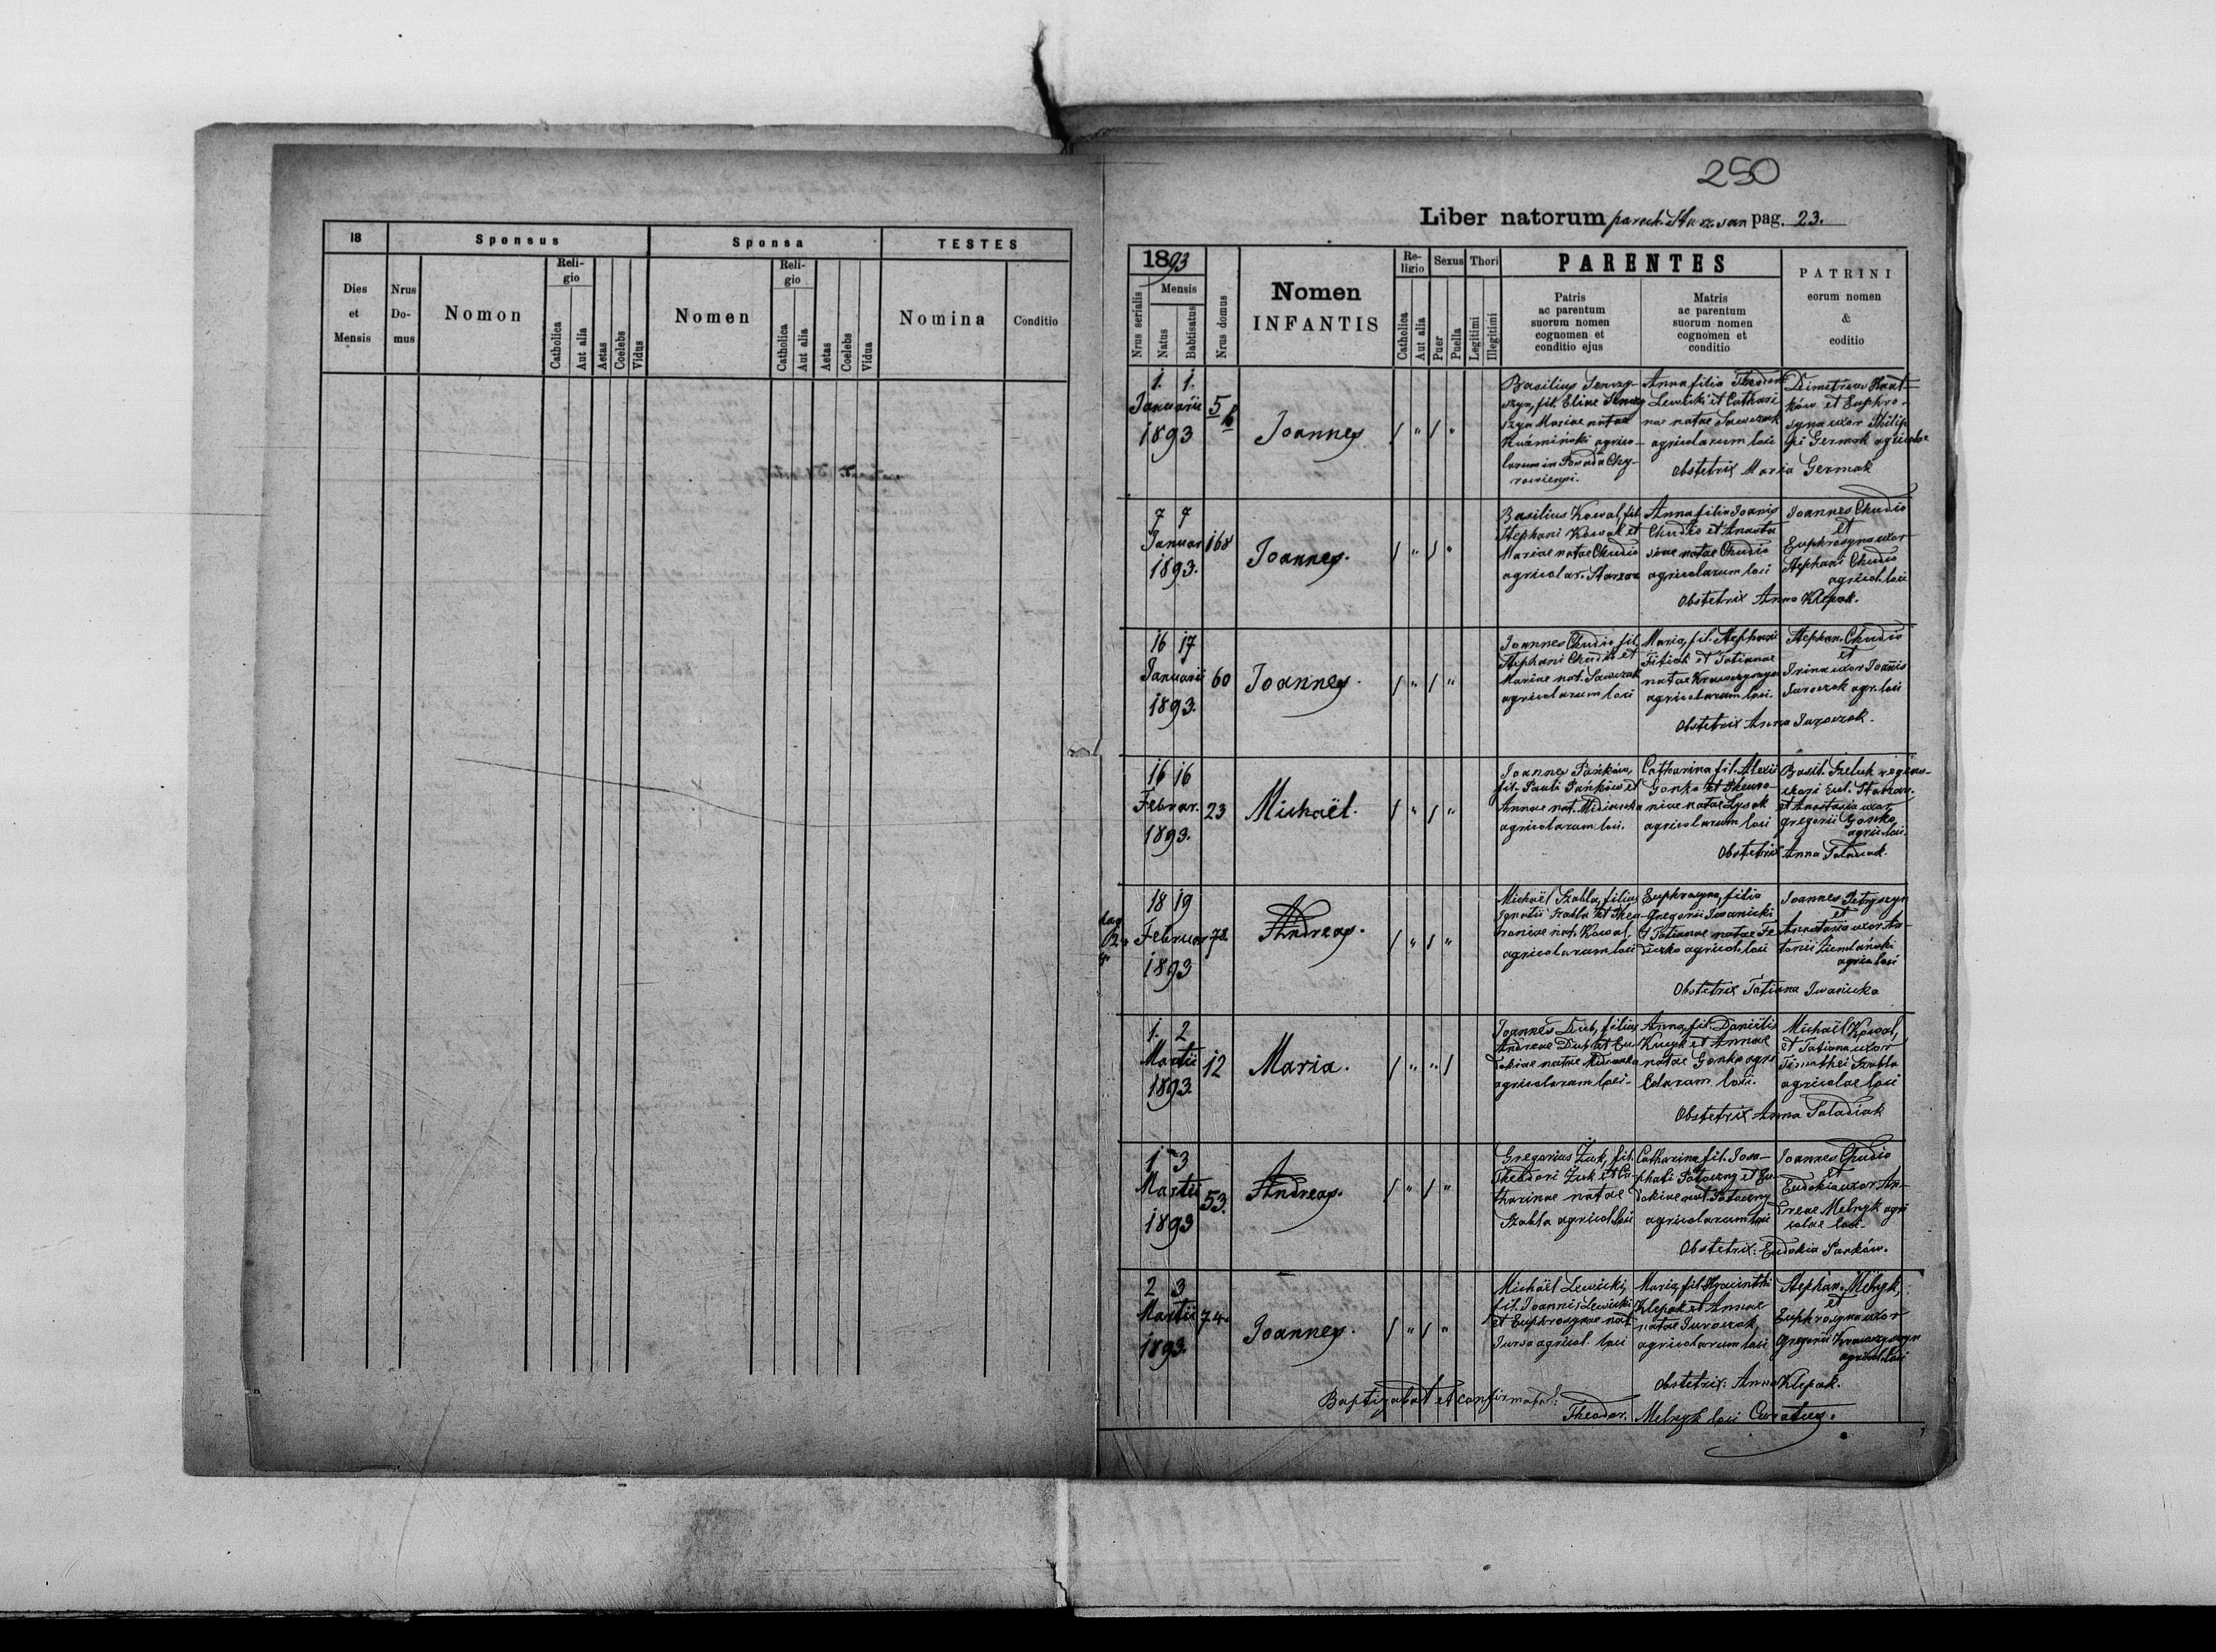 18
Sponsus
Sponsa
TESTES
Dies et Mensis
Nrus Do-mus
Nomon
Reli-gio
Catholica
Aut alia
Aetas
Coelebs
Vidus
Nomen
Reli-gio
Catholica
Aut alia
Aetas
Coelebs
Vidua
Nomina
Conditio
250
Liber natorum paroch. Starzawa pag. 23.
1893
Nrus serialis
Mensis
Natus
Babtisatus
Nrus domus
Nomen
INFANTIS
Re-ligio
Catholica
Aut alia
Sexus
Puer
Puella
Thori
Legitimi
Illegitimi
PARENTES
Patris
ac parentum
suorum nomen
cognomen et
conditio ejus
Matris
ac parentum
suorum nomen
cognomen et
conditio
PATRINI
eorum nomen
&
coditio
1. 1.
Januarii
1893
5
Joannes
/ " / "
Basilius
fil. Eliae
Mariae natae
Kuźmiński agrico-
larum in Posada Chy-
rowiensi.
Anna filia Theodori
Lewicki et Cathari
nae natae Sawczak
agricolarum loci
Dimetrius
et Euphro-
syna uxor Philip
pi Germak agricolae
Obstetrix Maria Germak
7 7
Januar
1893.
168
Joannes.
/ " / "
Basilius Kowal, fil.
Stephani Kowal et
Mariae natae Chudio
agricolar. Starzawa
Anna filia Joannis
Chudio et Anasta
siae natae Chudio
agricolarum loci
Joannes Chudio
et
Euphrosyna uxor
Stephani Chudio
agricol. loci
Obstetrix Anna Klepak.
16 17
Januarii
1893.
60
Joannes.
/ " / "
Joannes Chudio, fil.
Stephani Chudio et
Mariae nat. Sawczak
agricolarum loci
Maria, fil. Stephani
Fitiak et Tatianae
natae Krawczyszyn
agricolarum loci.
Stephan. Chudio
et
Irina uxor Joannis
Juroczok agr. loci
Obstetrix Anna Juroczok.
16 16
Februar.
1893.
23
Michaël.
/ " / "
Joannes Pańków,
fil. Pauli Pańków et
Annae nat.
agricolarum loci.
Catharina fil. Alexii
Gonko et Pheuro-
niae natae Lysak
agricolarum loci
Basil.
et Anastasia uxor
Gregorii Gonko
agric. loci.
Obstetrix Anna Saladiak.
18 19
Februar
1893
72
Andreas.
/ " / "
Michaël Szabla, filius
Ignatii Szabla et Pheu-
roniae nat. Kowal,
agricolarum loci
Euphrosyna, filia
Gregorii Iwanicki
et Tatianae natae Fe
dczko agricol. loci
Joannes Petryszyn
et
Anastasia uxor An-
tonii Ziemlański
agric. loci
Obstetrix Tatiana Iwanicka
1. 2
Martii
1893.
12
Maria.
/ " " /
Joannes Dub, filius
Andreae Dub et Eu-
dokiae natae
agricolarum loci.
Anna, fil. Daniëlis
Kucyk et Annae
natae Gonko agri
colarum loci.
Michaël Kowal,
et Tatiana uxor
Timothei Szabla
agricolae loci
Obstetrix Anna Saladiak
1 3
Martii
1893
53.
Andreas.
/ " / "
Gregorius Żuk, fil.
Theodori Żuk et Ca-
tharinae natae
Szabla agricol. loci
Catharina fil. Josa-
phati Potoczny et Eu
dokiae nat. Potoczny
agricolarum loci
Joannes Chudio
et
Eudokia uxor An-
dreae Melnyk agri
colae loci.
Obstetrix: Eudokia Pańków.
2 3
Martii
1893.
74.
Joannes.
/ " / "
Michaël Lewicki,
fil. Joannis Lewicki
et Euphrosynae nat.
agricol. loci
Maria, fil. Hyacinthi
Klepak et Annae
natae Juroczak,
agricolarum loci
Stephan. Melnyk,
et
Euphrosyna uxor
Gregorii Krawczyszyn
agricol. loci
Obstetrix: Anna Klepak.
Baptizabat et confirmabat:
Theodor. Melnyk loci Curatus.